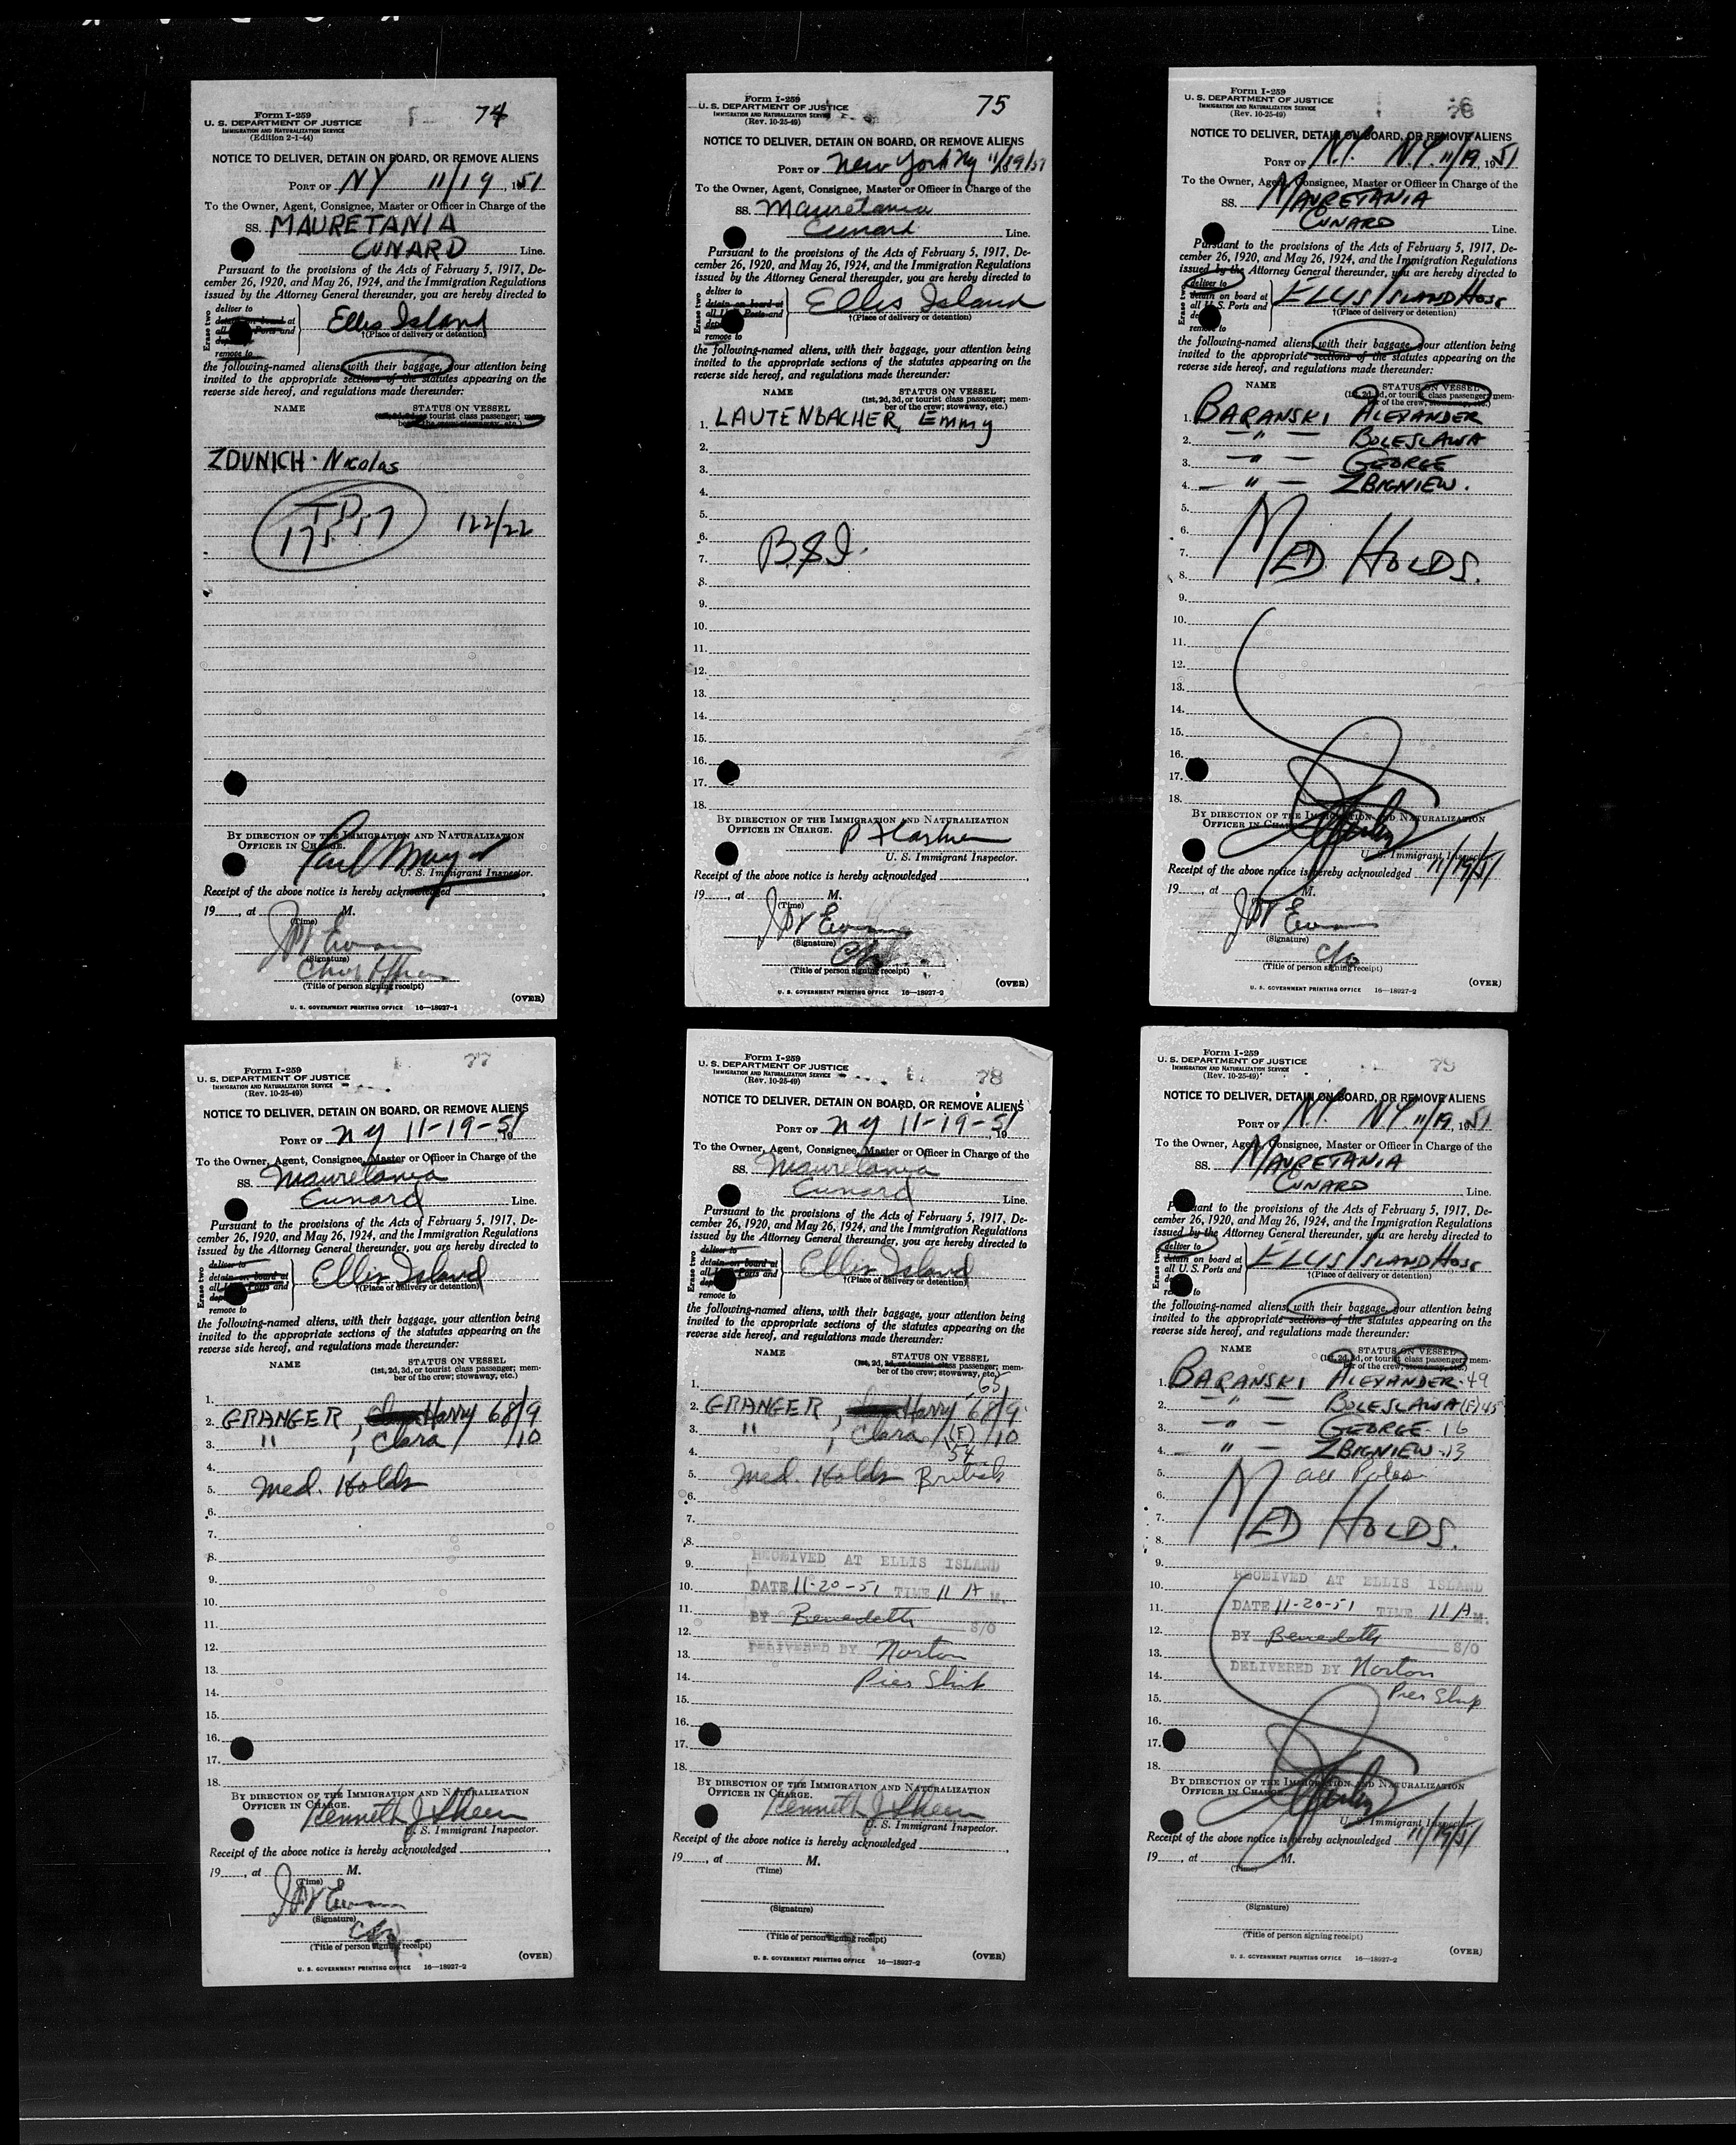 74
Form I-259
U. S. DEPARTMENT OF JUSTICE
IMMIGRATION AND NATURALIZATION SERVICE
(Edition 2-1-44)
NOTICE TO DELIVER, DETAIN ON BOARD, OR REMOVE ALIENS
PORT OF NY 11/19, 1951
To the Owner, Agent, Consignee, Master or Officer in Charge of the
SS. MAURETANIA
CUNARD Line.
Pursuant to the provisions of the Acts of February 5, 1917, De-
cember 26, 1920, and May 26, 1924, and the Immigration Regulations
issued by the Attorney General thereunder, you are hereby directed to
Erase two
deliver to
detain on board at
Ports and
remove to
Ellis Island
†(Place of delivery or detention)
the following-named aliens, with their baggage, your attention being
invited to the appropriate sections of the statutes appearing on the
reverse side hereof, and regulations made thereunder:
NAME STATUS ON VESSEL
tourist class passenger; mem-
ber of the crew; stowaway, etc.)
ZDUNICH - Nicolas
TD
17557 122/22
BY DIRECTION OF THE IMMIGRATION AND NATURALIZATION
OFFICER IN CHARGE.
Paul Mayer
U. S. Immigrant Inspector.
Receipt of the above notice is hereby acknowledged
19, at M.
(Time)
Evans
(Signature)
Chief Officer
(Title of person signing receipt)
(OVER)
U. S. GOVERNMENT PRINTING OFFICE 16—18927-1
75
Form I-259
U. S. DEPARTMENT OF JUSTICE
IMMIGRATION AND NATURALIZATION SERVICE
(Rev. 10-25-49)
NOTICE TO DELIVER, DETAIN ON BOARD, OR REMOVE ALIENS
PORT OF New York Ny 11/19/51
To the Owner, Agent, Consignee, Master or Officer in Charge of the
SS. Mauretania
Cunard Line.
Pursuant to the provisions of the Acts of February 5, 1917, De-
cember 26, 1920, and May 26, 1924, and the Immigration Regulations
issued by the Attorney General thereunder, you are hereby directed to
Erase two
deliver to
detain on board at
all U. S. Ports and
remove to
Ellis Island
†(Place of delivery or detention)
the following-named aliens, with their baggage, your attention being
invited to the appropriate sections of the statutes appearing on the
reverse side hereof, and regulations made thereunder:
NAME STATUS ON VESSEL
(1st, 2d, 3d, or tourist class passenger; mem-
ber of the crew; stowaway, etc.)
1. LAUTENBACHER, Emmy
2.
3.
4.
5.
6.
7. B.S.I.
8.
9.
10.
11.
12.
13.
14.
15.
16.
17.
18.
BY DIRECTION OF THE IMMIGRATION AND NATURALIZATION
OFFICER IN CHARGE.
U. S. Immigrant Inspector.
Receipt of the above notice is hereby acknowledged
19, at M.
(Time)
Evans
(Signature)
(Title of person signing receipt)
(OVER)
U. S. GOVERNMENT PRINTING OFFICE 16—18927-2
76
Form I-259
U. S. DEPARTMENT OF JUSTICE
IMMIGRATION AND NATURALIZATION SERVICE
(Rev. 10-25-49)
NOTICE TO DELIVER, DETAIN ON BOARD, OR REMOVE ALIENS
PORT OF N.Y. N.Y. 11/19, 1951
To the Owner, Agent, Consignee, Master or Officer in Charge of the
SS. MAURETANIA
CUNARD Line.
Pursuant to the provisions of the Acts of February 5, 1917, De-
cember 26, 1920, and May 26, 1924, and the Immigration Regulations
issued by the Attorney General thereunder, you are hereby directed to
Erase two
deliver to
detain on board at
all U. S. Ports and
remove to
ELLIS ISLAND HOSP
†(Place of delivery or detention)
the following-named aliens, with their baggage, your attention being
invited to the appropriate sections of the statutes appearing on the
reverse side hereof, and regulations made thereunder:
NAME STATUS ON VESSEL
(1st, 2d, 3d, or tourist class passenger; mem-
ber of the crew; stowaway, etc.)
1. BARANSKI ALEXANDER
2. — " — BOLESLAWA
3. — " — GEORGE
4. — " — ZBIGNIEW.
5.
6.
7. MED HOLDS.
8.
9.
10.
11.
12.
13.
14.
15.
16.
17.
18.
BY DIRECTION OF THE IMMIGRATION AND NATURALIZATION
OFFICER IN CHARGE.
U. S. Immigrant Inspector.
Receipt of the above notice is hereby acknowledged 11/19/51
19, at M.
Evans
(Signature)
C/o
(Title of person signing receipt)
(OVER)
U. S. GOVERNMENT PRINTING OFFICE 16—18927-2
77
Form I-259
U. S. DEPARTMENT OF JUSTICE
IMMIGRATION AND NATURALIZATION SERVICE
(Rev. 10-25-49)
NOTICE TO DELIVER, DETAIN ON BOARD, OR REMOVE ALIENS
PORT OF NY 11-19-51
To the Owner, Agent, Consignee, Master or Officer in Charge of the
SS. Mauretania
Cunard Line.
Pursuant to the provisions of the Acts of February 5, 1917, De-
cember 26, 1920, and May 26, 1924, and the Immigration Regulations
issued by the Attorney General thereunder, you are hereby directed to
Erase two
deliver to
detain on board at
all U. S. Ports and
remove to
Ellis Island
†(Place of delivery or detention)
the following-named aliens, with their baggage, your attention being
invited to the appropriate sections of the statutes appearing on the
reverse side hereof, and regulations made thereunder:
NAME STATUS ON VESSEL
(1st, 2d, 3d, or tourist class passenger; mem-
ber of the crew; stowaway, etc.)
1.
2. GRANGER, Harry 68/9
3. " , Clara /10
4.
5. Med. Holds
6.
7.
8.
9.
10.
11.
12.
13.
14.
15.
16.
17.
18.
BY DIRECTION OF THE IMMIGRATION AND NATURALIZATION
OFFICER IN CHARGE.
Kenneth J Sheen
U. S. Immigrant Inspector.
Receipt of the above notice is hereby acknowledged
19, at M.
(Time)
Evans
(Signature)
(Title of person signing receipt)
(OVER)
U. S. GOVERNMENT PRINTING OFFICE 16—18927-2
78
Form I-259
U. S. DEPARTMENT OF JUSTICE
IMMIGRATION AND NATURALIZATION SERVICE
(Rev. 10-25-49)
NOTICE TO DELIVER, DETAIN ON BOARD, OR REMOVE ALIENS
PORT OF NY 11-19-51
To the Owner, Agent, Consignee, Master or Officer in Charge of the
SS. Mauretania
Cunard Line.
Pursuant to the provisions of the Acts of February 5, 1917, De-
cember 26, 1920, and May 26, 1924, and the Immigration Regulations
issued by the Attorney General thereunder, you are hereby directed to
Erase two
deliver to
detain on board at
all U. S. Ports and
remove to
Ellis Island
†(Place of delivery or detention)
the following-named aliens, with their baggage, your attention being
invited to the appropriate sections of the statutes appearing on the
reverse side hereof, and regulations made thereunder:
NAME STATUS ON VESSEL
(1st, 2d, 3d, or tourist class passenger; mem-
ber of the crew; stowaway, etc.)
1. 65
2. GRANGER, Harry 68/9
3. " , Clara (F) /10
4. 54
5. Med. Holds British
6.
7.
8.
9. RECEIVED AT ELLIS ISLAND
10. DATE 11-20-51 TIME 11 A M.
11. BY Benedetti
12. S/O
13. DELIVERED BY Norton
14. Pier Shift
15.
16.
17.
18.
BY DIRECTION OF THE IMMIGRATION AND NATURALIZATION
OFFICER IN CHARGE.
Kenneth J Sheen
U. S. Immigrant Inspector.
Receipt of the above notice is hereby acknowledged
19, at M.
(Time)
(Signature)
(Title of person signing receipt)
(OVER)
U. S. GOVERNMENT PRINTING OFFICE 16—18927-2
79
Form I-259
U. S. DEPARTMENT OF JUSTICE
IMMIGRATION AND NATURALIZATION SERVICE
(Rev. 10-25-49)
NOTICE TO DELIVER, DETAIN ON BOARD, OR REMOVE ALIENS
PORT OF N.Y. N.Y. 11/19, 1951
To the Owner, Agent, Consignee, Master or Officer in Charge of the
SS. MAURETANIA
CUNARD Line.
Pursuant to the provisions of the Acts of February 5, 1917, De-
cember 26, 1920, and May 26, 1924, and the Immigration Regulations
issued by the Attorney General thereunder, you are hereby directed to
Erase two
deliver to
detain on board at
all U. S. Ports and
remove to
ELLIS ISLAND HOSP
†(Place of delivery or detention)
the following-named aliens, with their baggage, your attention being
invited to the appropriate sections of the statutes appearing on the
reverse side hereof, and regulations made thereunder:
NAME STATUS ON VESSEL
(1st, 2d, 3d, or tourist class passenger; mem-
ber of the crew; stowaway, etc.)
1. BARANSKI ALEXANDER - 49
2. — " — BOLESLAWA (F) 45
3. — " — GEORGE - 16
4. — " — ZBIGNIEW - 13
5. all Poles
6.
7. MED HOLDS.
8.
9. RECEIVED AT ELLIS ISLAND
10.
11. DATE 11-20-51 TIME 11 A M.
12. BY Benedetti S/O
13. DELIVERED BY Norton
14.
15. Pier Shift
16.
17.
18.
BY DIRECTION OF THE IMMIGRATION AND NATURALIZATION
OFFICER IN CHARGE.
U. S. Immigrant Inspector.
Receipt of the above notice is hereby acknowledged 11/19/51
19, at M.
(Time)
(Signature)
(Title of person signing receipt)
(OVER)
U. S. GOVERNMENT PRINTING OFFICE 16—18927-2